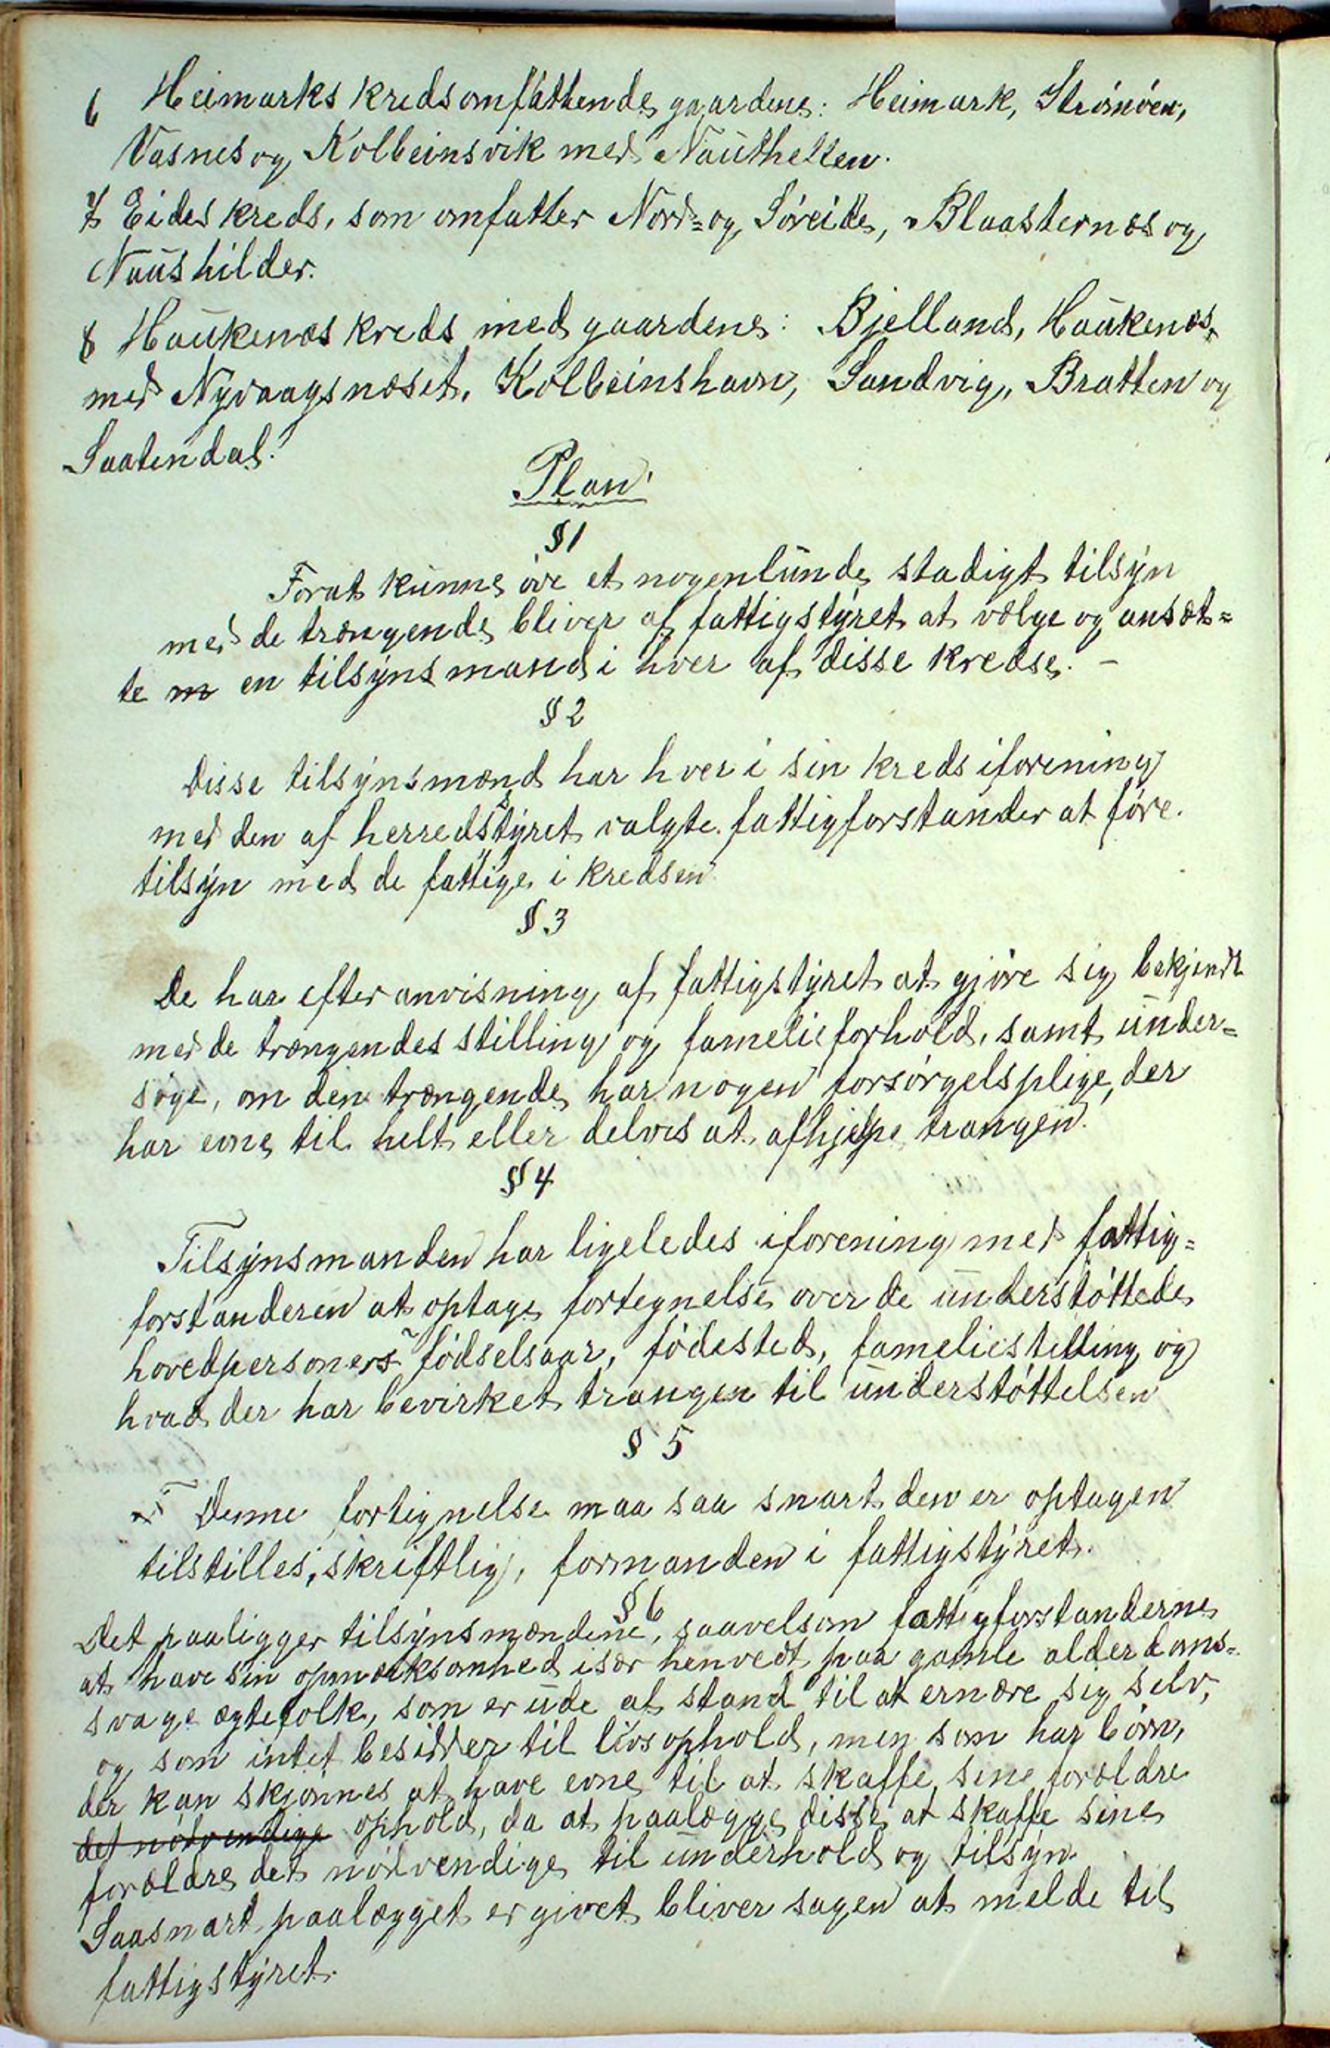 6 Heimarks kreds omfattende gaardene: Heimark, Strømøen,
Vasnes og Kolbeinsvik med Nauthellen.
7 Eides kreds, som omfatter Nord- og Søreide, Blaasternæs og
Naushilder.
8 Haukenæs kreds med gaardene: Bjelland, Haukenæs
med Nyvaagsnæset, Kolbeinshavn, Sandvig, Bratten og
Saatendal.
Plan
§ 1
Forat kunne øve et nogenlunde stadigt tilsyn
med de trængende bliver af fattigstyret at vælge og ansæt=
te en tilsynsmand i hver af disse kredse. –
§ 2
Disse tilsynsmænd har hver i sin kreds iforening
med den af herredsstyret valgte fattigforstander at føre
tilsyn med de fattige i kredsen
§ 3
De har efter anvisning af fattigstyret at gjøre sig bekjendt
med de trængendes stilling og famelieforhold, samt under=
søge, om den trængende har nogen forsørgelsplige, der
har evne til helt eller delvis at afhjelpe trangen.
§ 4
Tilsynsmanden har ligeledes iforening med fattig=
forstanderen at optage fortegnelse over de understøttede
hovedpersoners fødselsaar, fødested, familiestilling og
hvad der har bevirket trangen til understøttelsen
§ 5
Denne fortegnelse maa saa snart den er optagen
tilstilles, skriftlig, formanden i fattigstyret.
§ 6
Det paaligger tilsynsmændene, saavelsom fattigforstanderne
at have sin opmærksomhed især henvedt paa gamle alderdoms-
svage ægtefolk, som er ude af stand til at ernære sig selv,
og som intet besidder til livsophold, men som har børn,
der kan skjønnes at have evne til at skaffe sine forældre
det nødvendige ophold, da at paalægge disse at skaffe sine
forældre det nødvendige til underhold og tilsyn.
Saasnart paalægget er givet bliver sagen at melde til
fattigstyret.